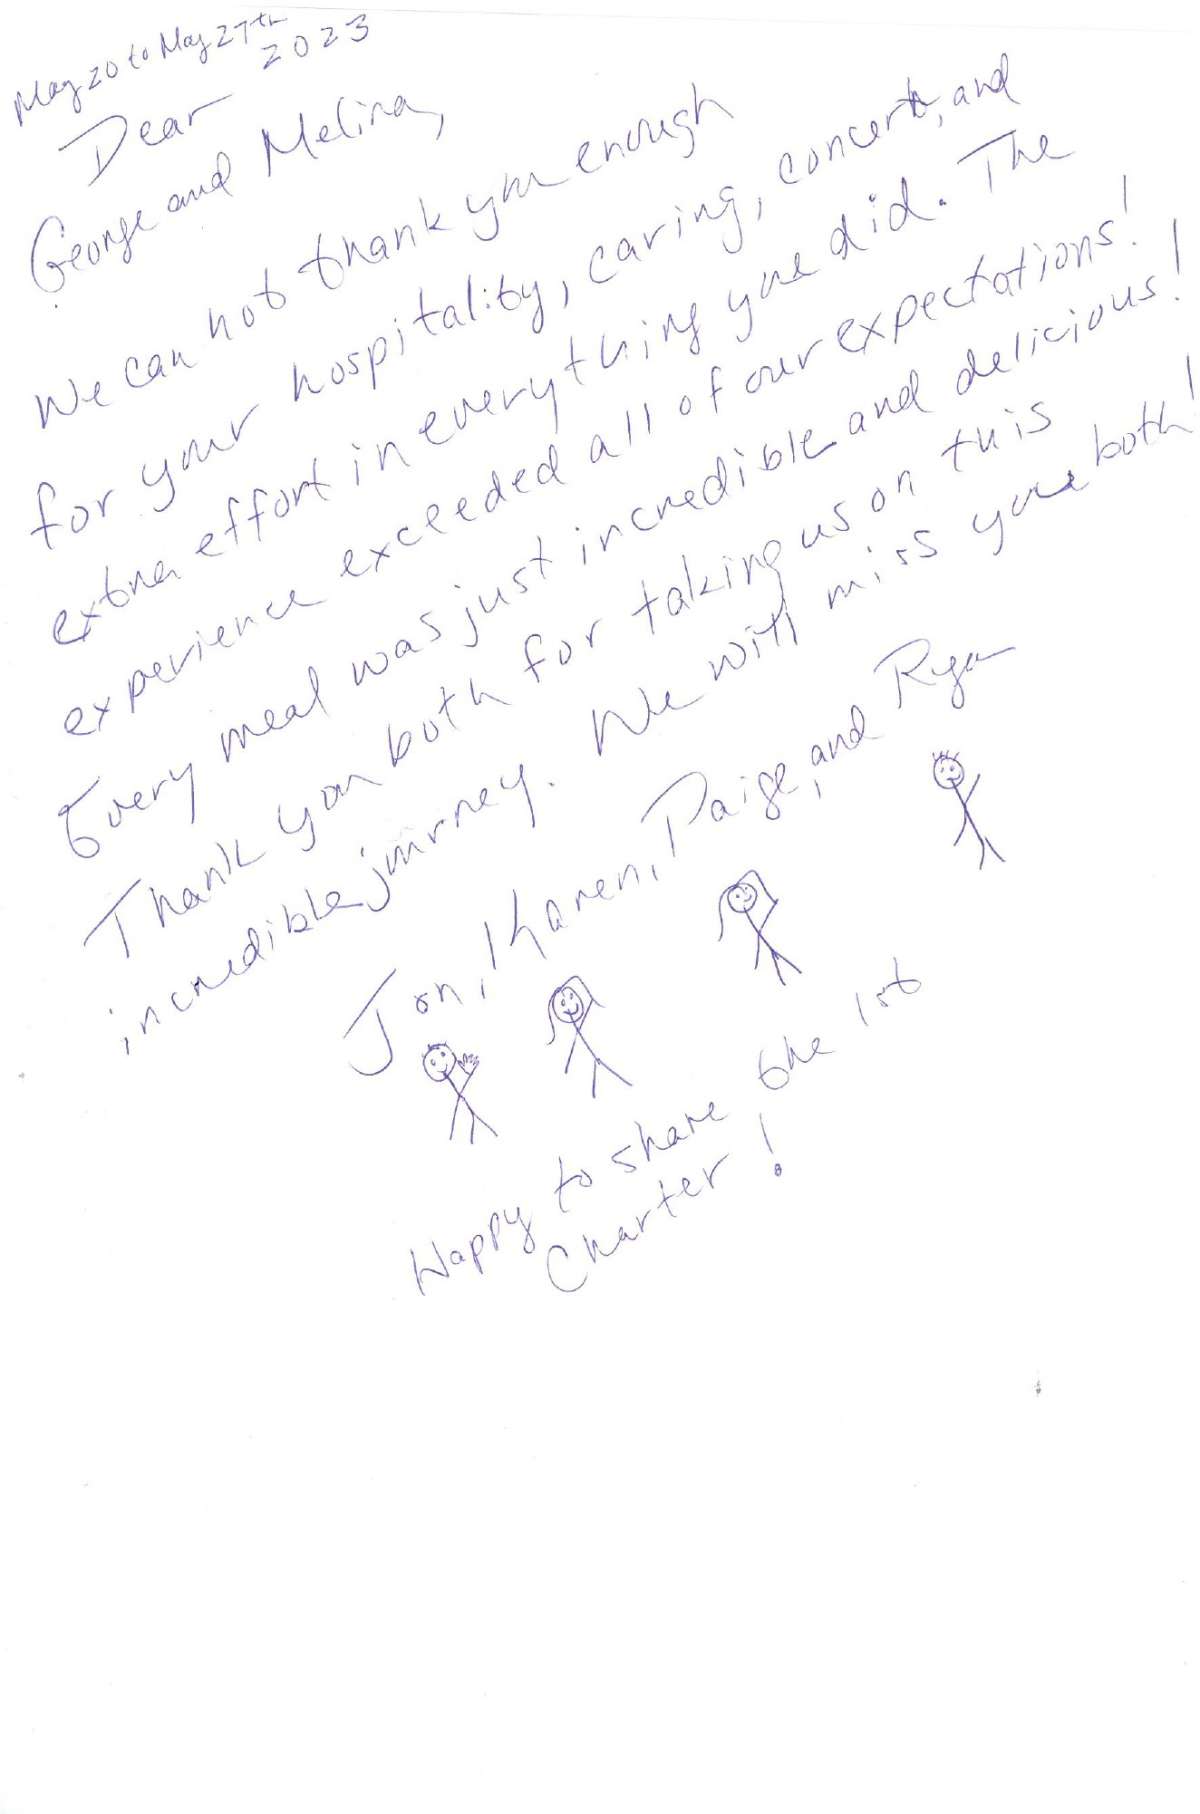 May 20 to May 27th
2023
Dear
George and Melina,
We can not thank you enough
for your hospitality, caring, concert, and
extra effort in everything you did. The
experience exceeded all of our expectations!
Every meal was just incredible and delicious!
Thank you both for taking us on this
incredible journey. We will miss you both!
Jon, Karen, Paige, and Ryan
Happy to share the 1st
Charter!